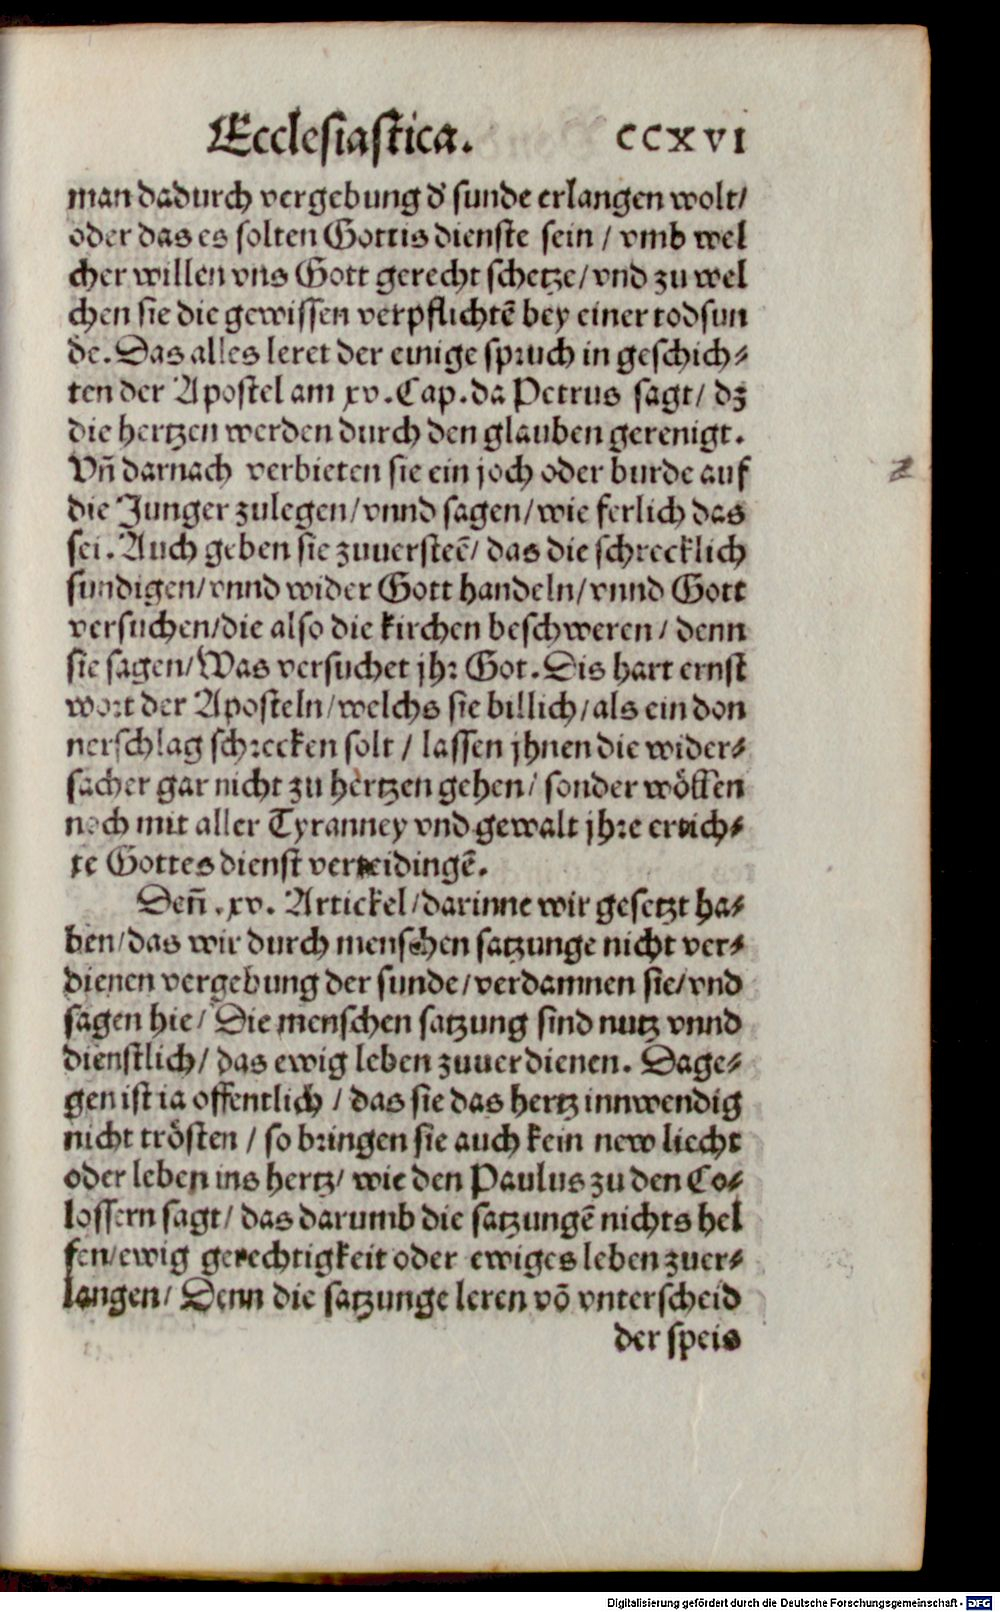 Ecclesiastica. CCXVI
man dadurch vergebung d' sunde erlangen wolt/
oder das es solten Gottis dienste sein / vmb wel
cher willen vns Gott gerecht schetze/vnd zu wel
chen sie die gewissen verpflichtē bey einer todsun
de. Das alles leret der einige spruch in geschich⸗
ten der Apostel am xv. Cap. da Petrus sagt/ dz
die hertzen werden durch den glauben gerenigt.
Vn̄ darnach verbieten sie ein joch oder burde auf
die Junger zulegen/vnnd sagen/wie ferlich das
sei. Auch geben sie zuuersteē/ das die schrecklich
sundigen/vnnd wider Gott handeln/vnnd Gott
versuchen/die also die kirchen beschweren / denn
sie sagen/Was versuchet jhr Got. Dis hart ernst
wort der Aposteln/welchs sie billich/als ein don
nerschlag schrecken solt / lassen jhnen die wider⸗
sacher gar nicht zu hertzen gehen/ sonder wöllen
noch mit aller Tyranney vnd gewalt jhre ertich⸗
te Gottes dienst verteidingē.
Den̄ .xv. Artickel/darinne wir gesetzt ha⸗
ben/das wir durch menschen satzunge nicht ver⸗
dienen vergebung der sunde/verdamnen sie/vnd
sagen hie/ Die menschen satzung sind nutz vnnd
dienstlich/ das ewig leben zuuerdienen. Dage⸗
gen ist ia offentlich / das sie das hertz innwendig
nicht trösten / so bringen sie auch kein new liecht
oder leben ins hertz/ wie den Paulus zu den Co⸗
lossern sagt/ das darumb die satzungē nichts hel
fen/ewig gerechtigkeit oder ewiges leben zuer⸗
langen/ Denn die satzunge leren vō vnterscheid
der speis
Digitalisierung gefördert durch die Deutsche Forschungsgemeinschaft - DFG